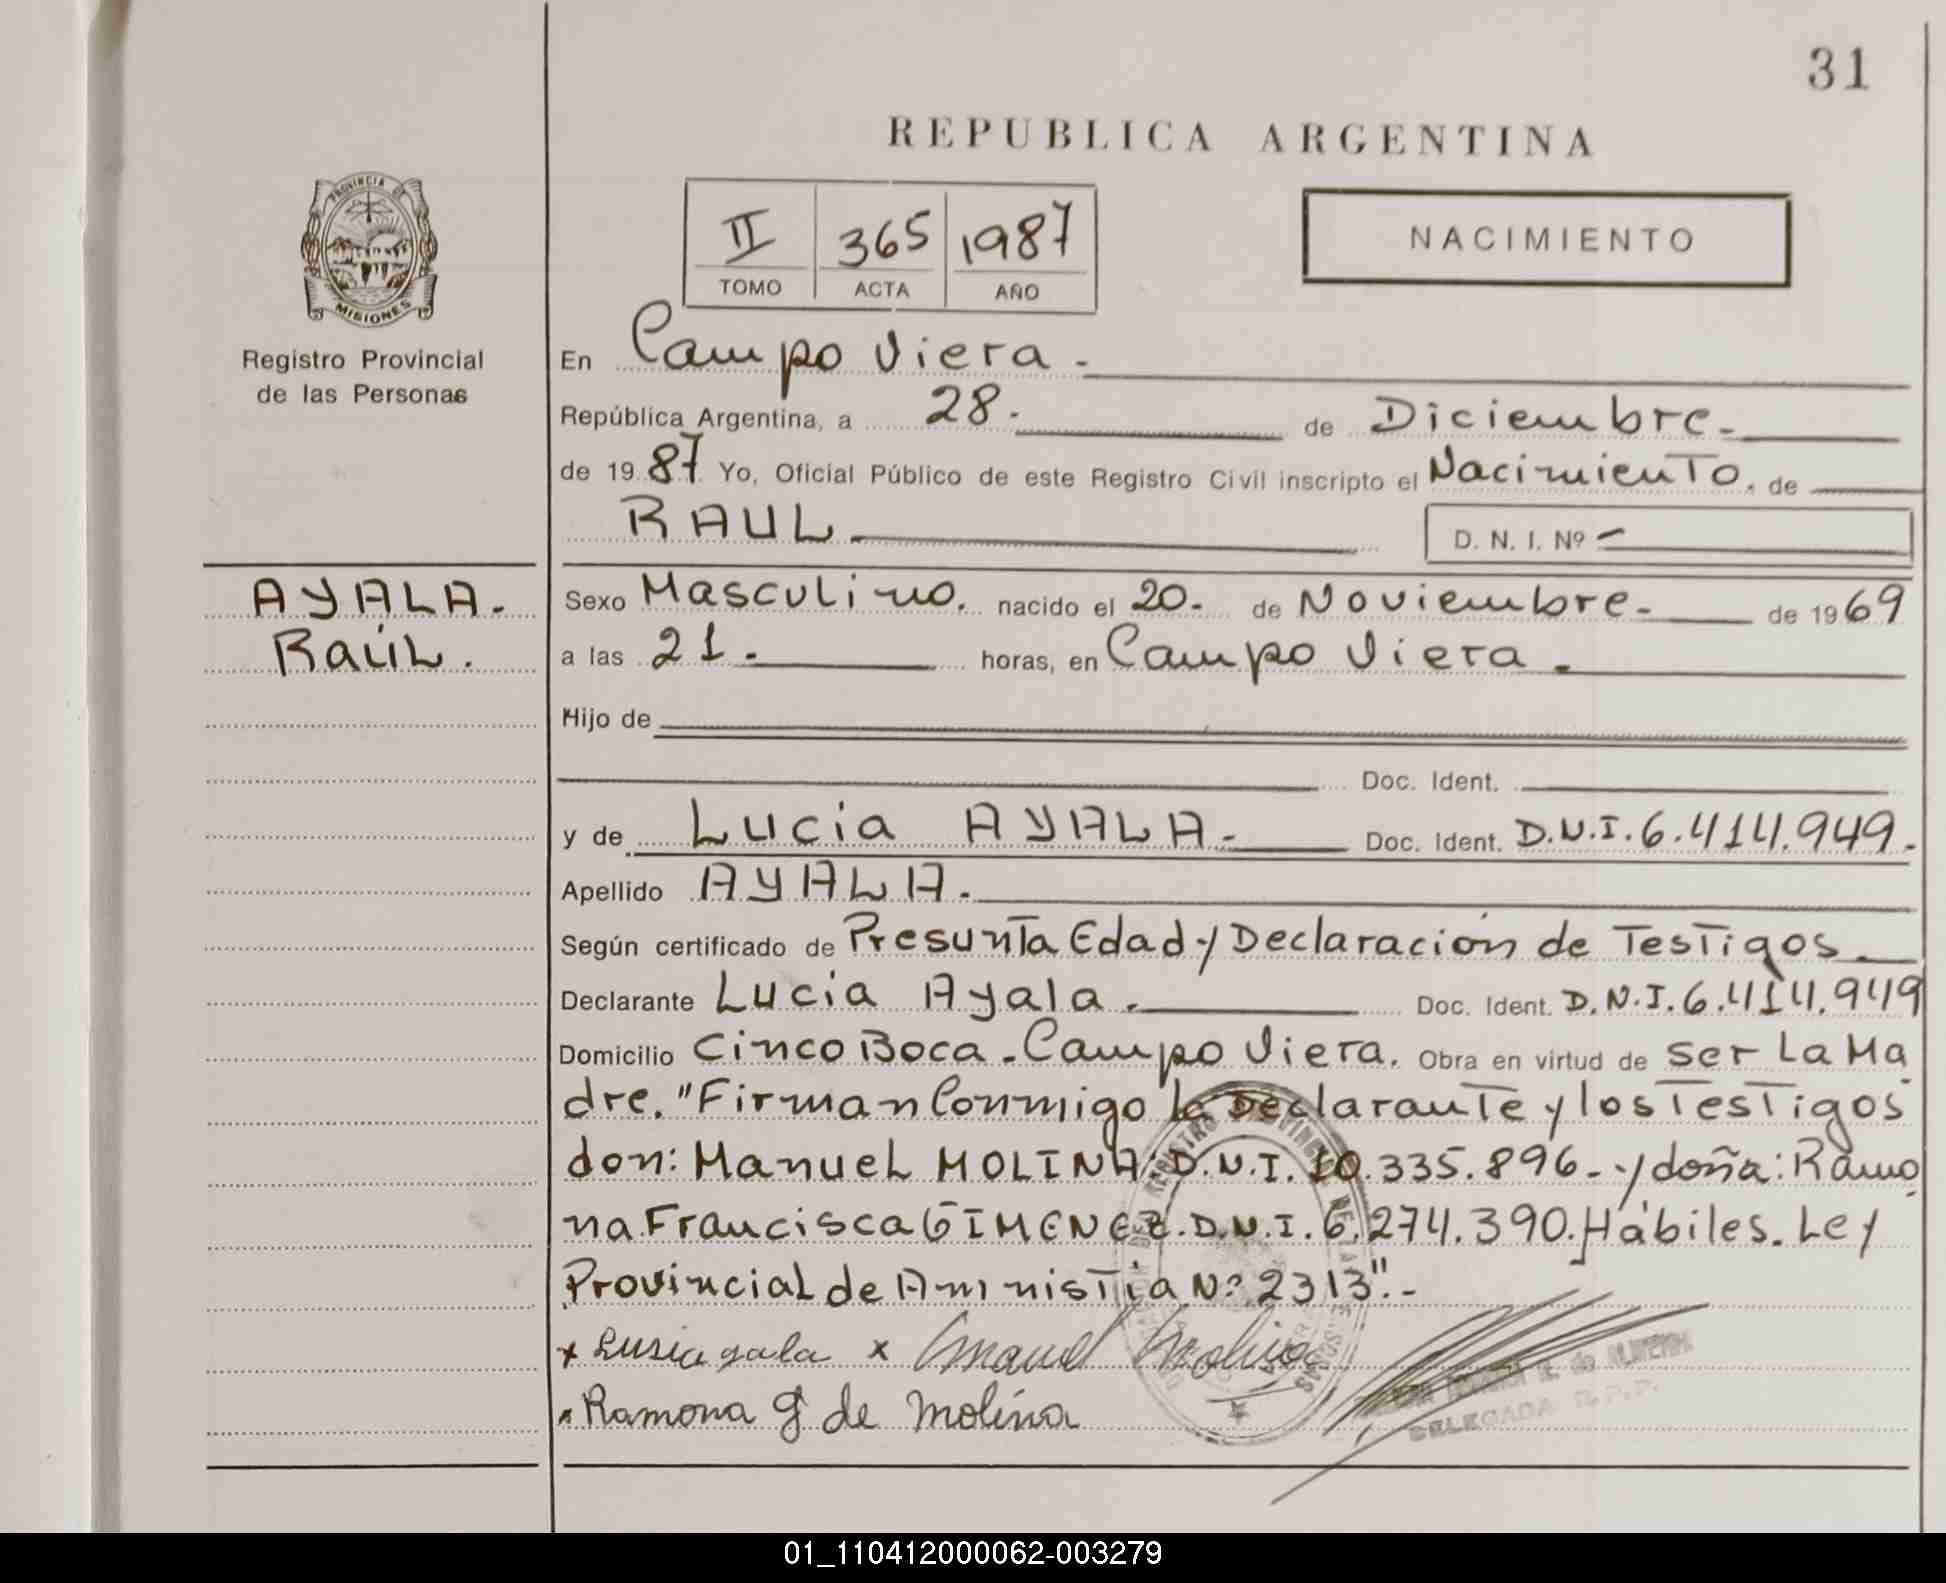 31
REPUBLICA ARGENTINA
PROVINCIA DE
MISIONES
Registro Provincial
de las Personas
II 365 1987
TOMO ACTA AÑO
NACIMIENTO
En Campo Viera.
República Argentina, a 28. de Diciembre.
de 19 87 Yo, Oficial Público de este Registro Civil inscripto el Nacimiento. de
RAUL D. N. I. Nº
AYALA.
Raúl.
Sexo Masculino. nacido el 20. de Noviembre. de 19 69
a las 21. horas, en Campo Viera.
Hijo de
Doc. Ident.
y de Lucia AYALA. Doc. Ident. D.N.I. 6.414.949.
Apellido AYALA.
Según certificado de Presunta Edad y Declaración de Testigos
Declarante Lucia Ayala. Doc. Ident. D.N.I. 6.414.949
Domicilio Cinco Boca. Campo Viera. Obra en virtud de ser La Ma
dre. "Firman Conmigo la Declarante y los Testigos
don: Manuel MOLINA. D.N.I. 10.335.896.- y doña: Ramo
na Francisca GIMENEZ. D.N.I. 6.274.390. Hábiles. Ley
Provincial de Amnistia Nº 2313".-
x Lusia yala x Manuel Molina
x Ramona g de molina
DELEGADA R.P.P.
01_110412000062-003279